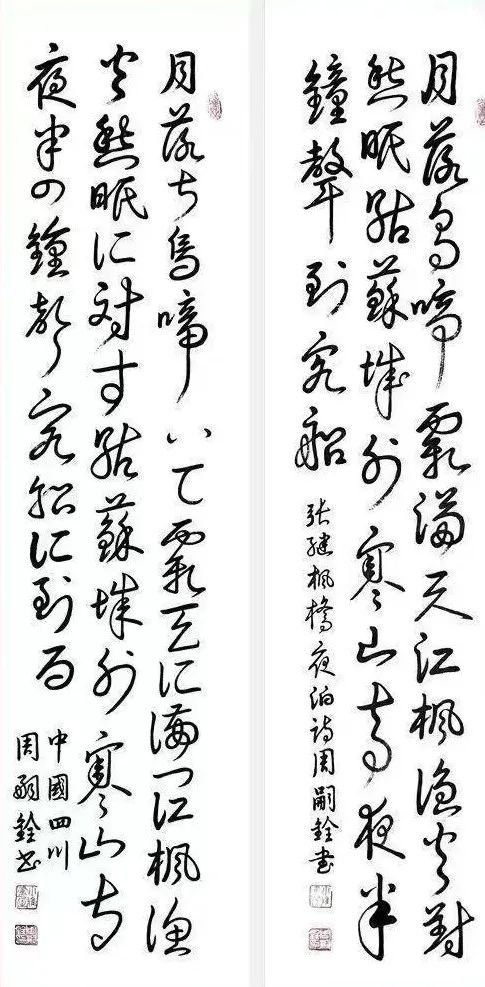 月落烏啼霜滿天江楓漁火對
愁眠姑蘇城外寒山寺夜半
鐘聲到客船
張繼楓橋夜泊詩周嗣銓書
月落ち烏啼いて霜天に滿つ江楓漁
火愁眠に対す姑蘇城外寒山寺
夜半の鐘聲客船に到る
中國四川
周嗣銓書